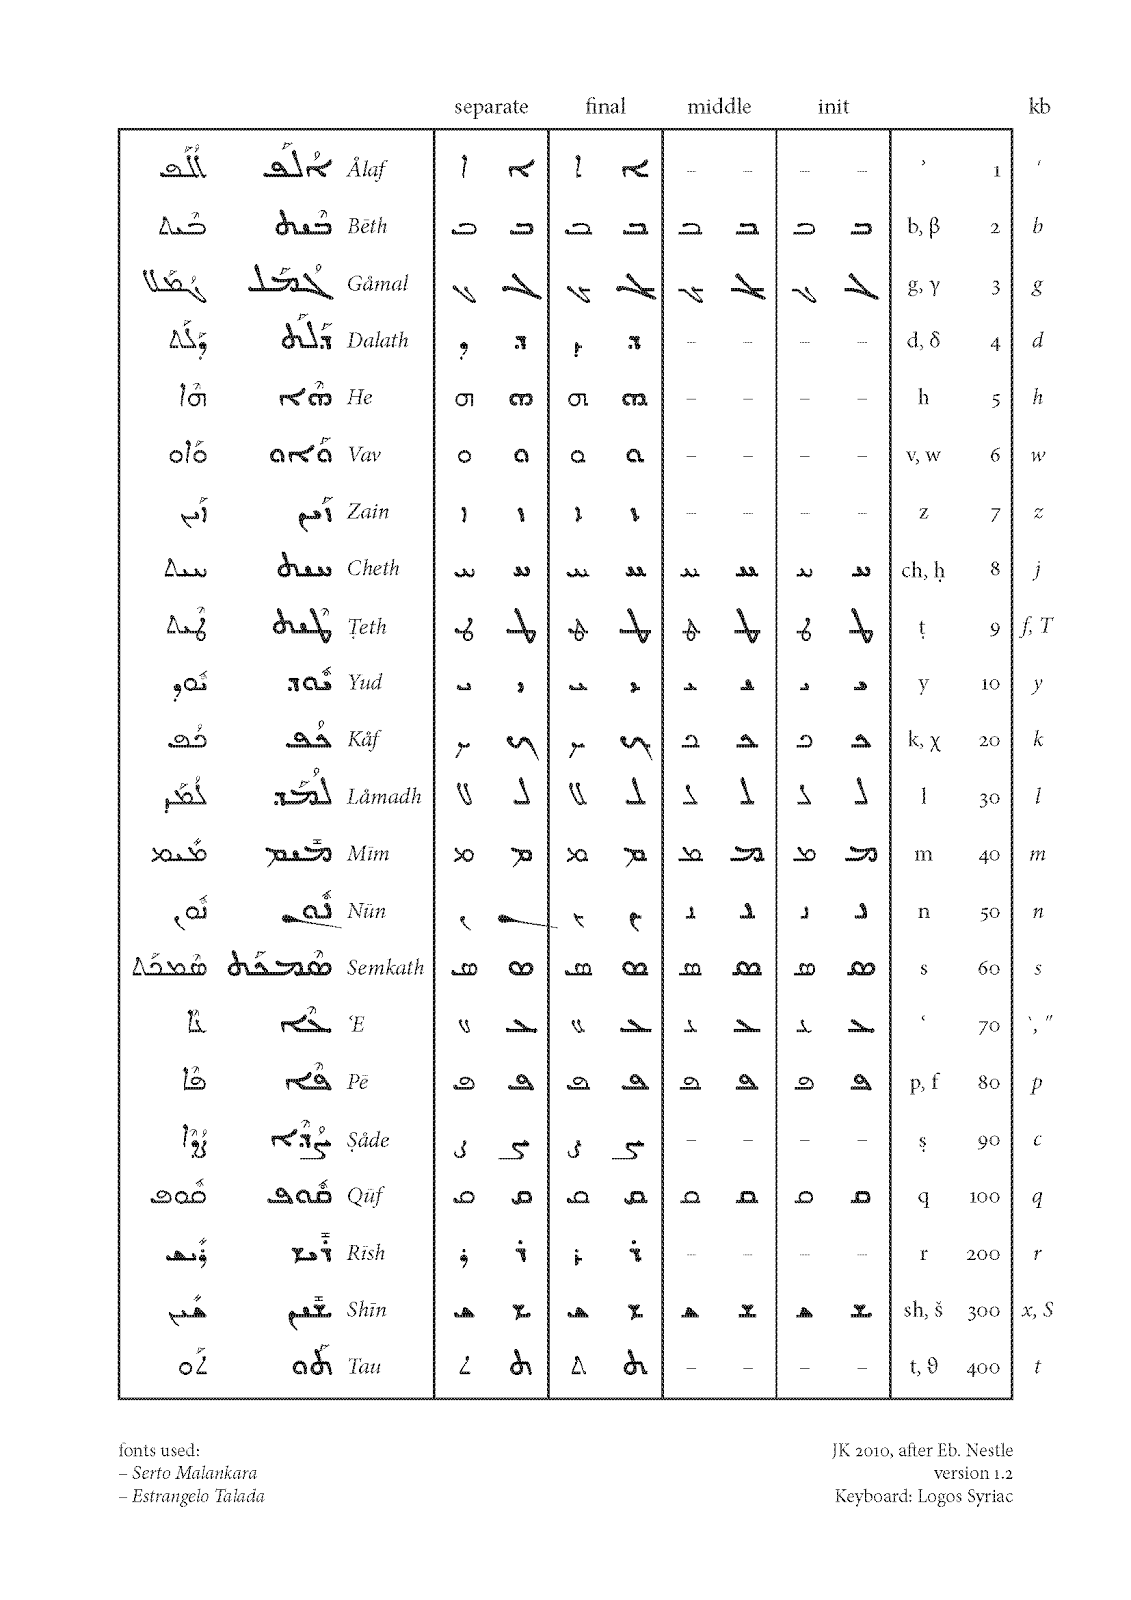 separate final middle init kb
ܐܳܠܰܦ ܐܳܠܰܦ Ålaf ܐ ܐ ܐ ܐ – – – – ʾ 1 ‘
ܒܶܝܬ ܒܶܝܬ Bēth ܒ ܒ ܒ ܒ ܒ ܒ ܒ ܒ b, β 2 b
ܓܳܡܰܠ ܓܳܡܰܠ Gåmal ܓ ܓ ܓ ܓ ܓ ܓ ܓ ܓ g, γ 3 g
ܕܰܠܰܬ ܕܰܠܰܬ Dalath ܕ ܕ ܕ ܕ – – – – d, δ 4 d
ܗܶܐ ܗܶܐ He ܗ ܗ ܗ ܗ – – – – h 5 h
ܘܰܐܘ ܘܰܐܘ Vav ܘ ܘ ܘ ܘ – – – – v, w 6 w
ܙܰܝܢ ܙܰܝܢ Zain ܙ ܙ ܙ ܙ – – – – z 7 z
ܚܝܬ ܚܝܬ Cheth ܚ ܚ ܚ ܚ ܚ ܚ ܚ ܚ ch, ḥ 8 j
ܛܶܝܬ ܛܶܝܬ Ṭeth ܛ ܛ ܛ ܛ ܛ ܛ ܛ ܛ ṭ 9 f, T
ܝܽܘܕ ܝܽܘܕ Yud ܝ ܝ ܝ ܝ ܝ ܝ ܝ ܝ y 10 y
ܟܳܦ ܟܳܦ Kåf ܟ ܟ ܟ ܟ ܟ ܟ ܟ ܟ k, χ 20 k
ܠܳܡܰܕ ܠܳܡܰܕ Låmadh ܠ ܠ ܠ ܠ ܠ ܠ ܠ ܠ l 30 l
ܡܺܝܡ ܡܺܝܡ Mīm ܡ ܡ ܡ ܡ ܡ ܡ ܡ ܡ m 40 m
ܢܽܘܢ ܢܽܘܢ Nūn ܢ ܢ ܢ ܢ ܢ ܢ ܢ ܢ n 50 n
ܣܶܡܟܰܬ ܣܶܡܟܰܬ Semkath ܣ ܣ ܣ ܣ ܣ ܣ ܣ ܣ s 60 s
ܥܶܐ ܥܶܐ ‘E ܥ ܥ ܥ ܥ ܥ ܥ ܥ ܥ ‘ 70 ‵, ″
ܦܶܐ ܦܶܐ Pē ܦ ܦ ܦ ܦ ܦ ܦ ܦ ܦ p, f 80 p
ܨܳܕܶܐ ܨܳܕܶܐ Ṣåde ܨ ܨ ܨ ܨ – – – – ṣ 90 c
ܩܽܘܦ ܩܽܘܦ Qūf ܩ ܩ ܩ ܩ ܩ ܩ ܩ ܩ q 100 q
ܪܺܝܫ ܪܺܝܫ Rīsh ܪ ܪ ܪ ܪ – – – – r 200 r
ܫܺܝܢ ܫܺܝܢ Shīn ܫ ܫ ܫ ܫ ܫ ܫ ܫ ܫ sh, š 300 x, S
ܬܰܘ ܬܰܘ Tau ܬ ܬ ܬ ܬ – – – – t, ϑ 400 t
fonts used:
– Serto Malankara
– Estrangelo Talada
JK 2010, after Eb. Nestle
version 1.2
Keyboard: Logos Syriac